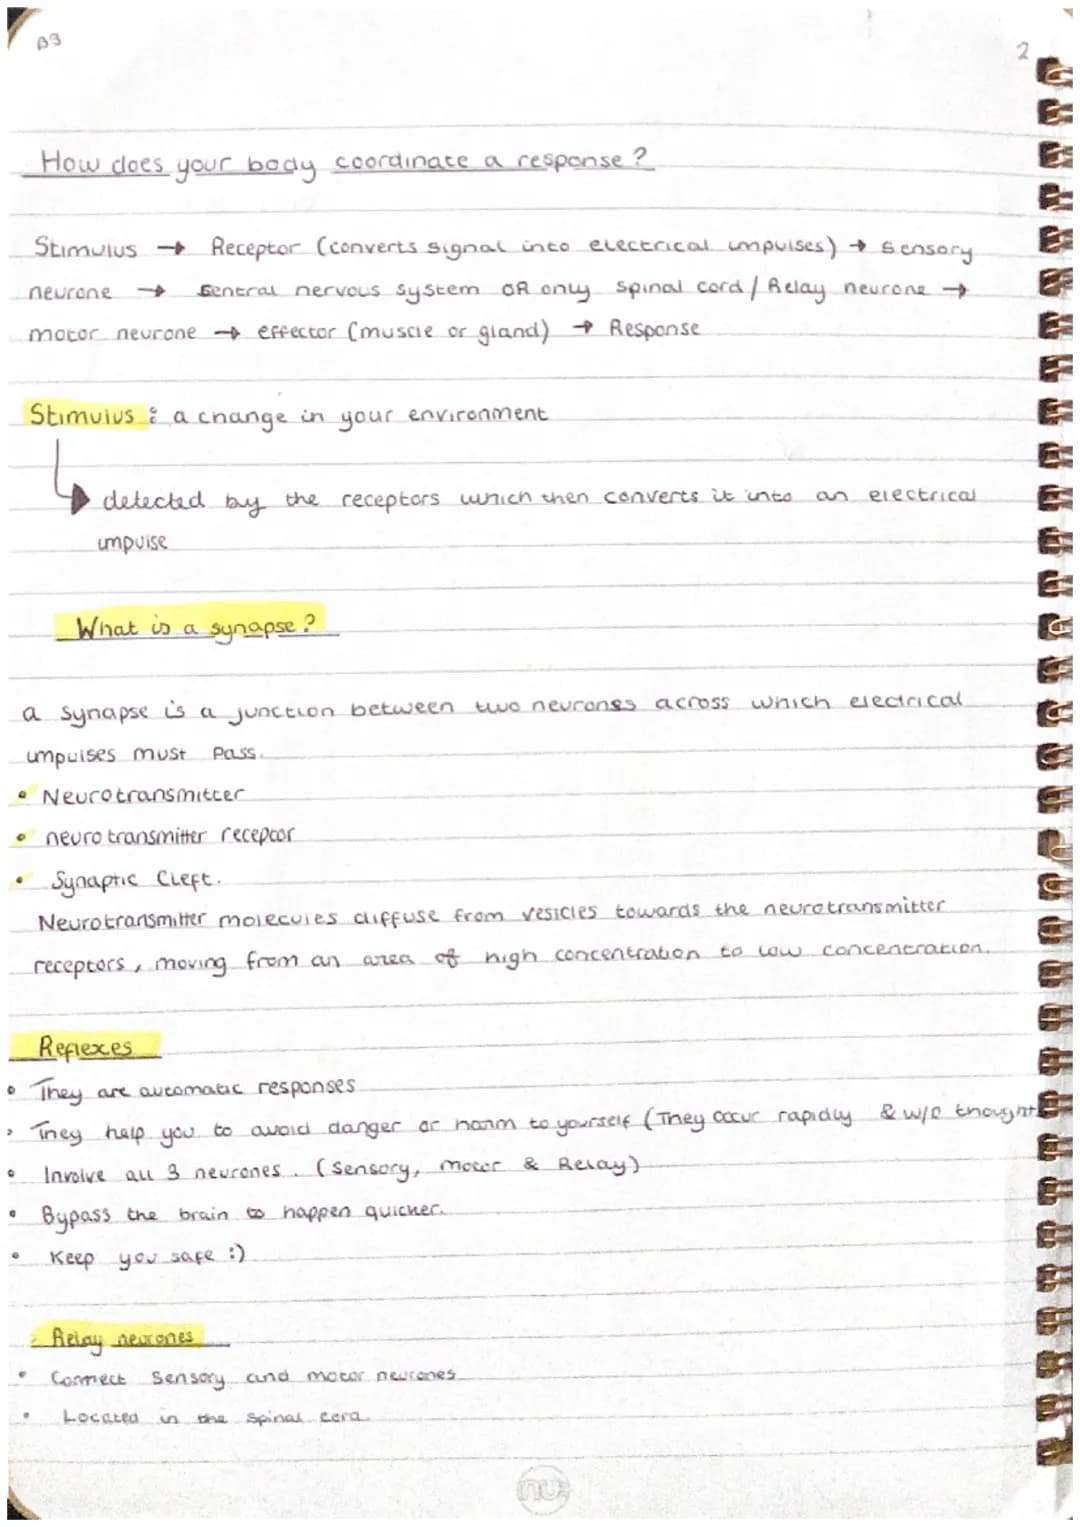 B3
2
How does your body coordinate a response?
Stimulus → Receptor (converts signal into electrical impulses) → Sensory
neurone → Central nervous system OR only spinal cord / Relay neurone →
motor neurone → effector (muscle or gland) → Response
Stimulus: a change in your environment
detected by the receptors which then converts it into an electrical
impulse
What is a synapse?
a synapse is a junction between two neurones across which electrical
impulses must pass.
• Neurotransmitter
• neurotransmitter receptor
• Synaptic Cleft.
Neurotransmitter molecules diffuse from vesicles towards the neurotransmitter
receptors, moving from an area of high concentration to low concentration.
Reflexes
• They are automatic responses
• They help you to avoid danger or harm to yourself (They occur rapidly & w/o thought
• Involve all 3 neurones. (Sensory, motor & Relay)
• Bypass the brain to happen quicker.
• Keep you safe :)
Relay neurones
• Connect Sensory and motor neurones
• Located in the spinal cord
nu: